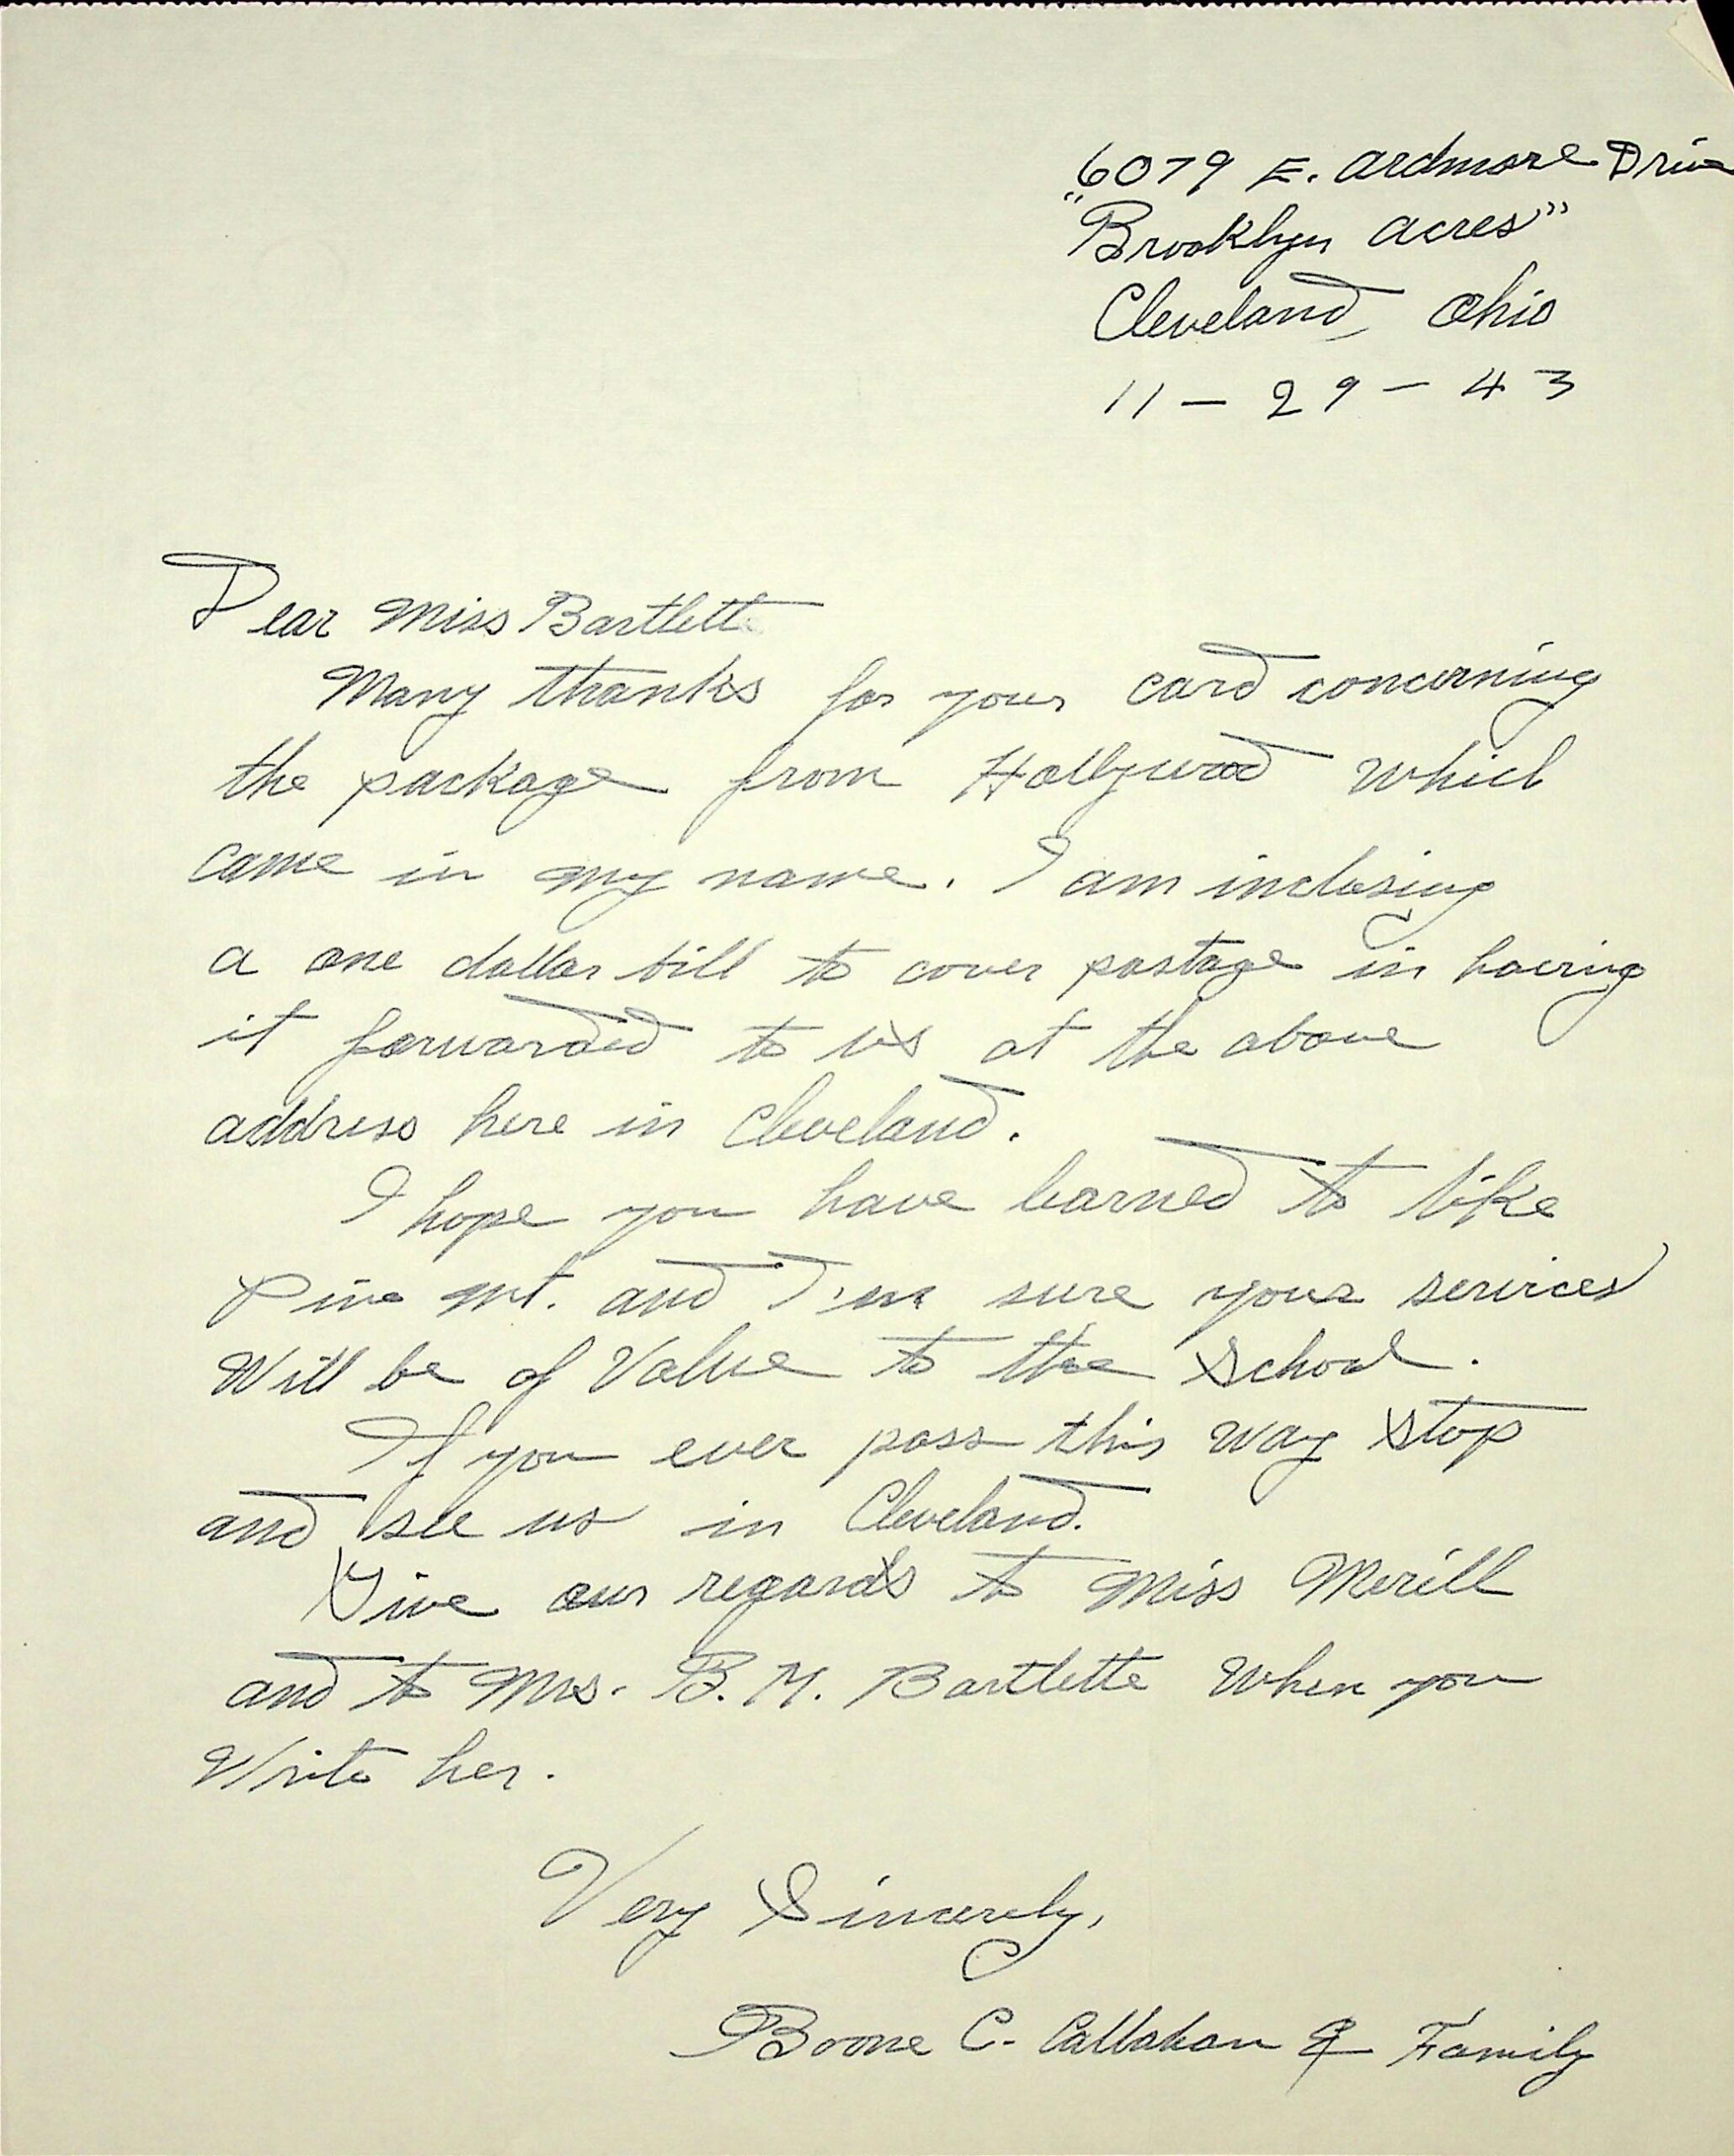 6079 E. Ardmore Drive
"Brooklyn Acres"
Cleveland, Ohio
11 - 29 - 43
Dear Miss Bartlett
Many thanks for your card concerning
the package from Hollywood which
came in my name. I am inclosing
a one dollar bill to cover postage in having
it forwarded to us at the above
address here in Cleveland.
I hope you have learned to like
Pine Mt. and I'm sure your services
will be of Value to the School.
If you ever pass this way stop
and see us in Cleveland.
Give our regards to Miss Merill
and to Mrs. B. M. Bartlette when you
write her.
Very Sincerely,
Boone C. Callahan & Family